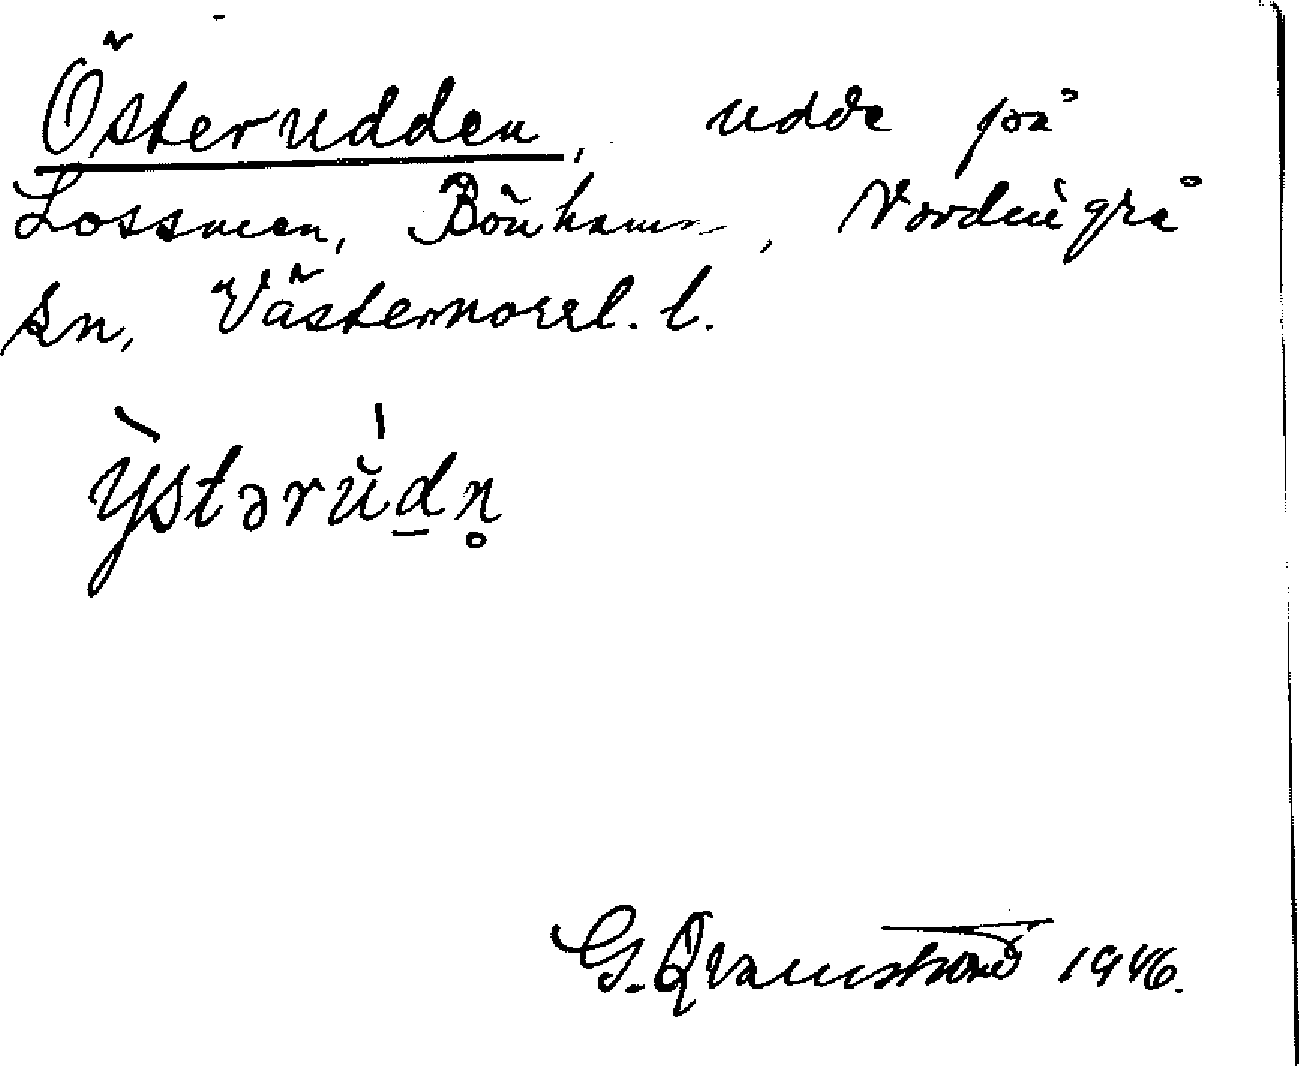 Österudden, udde på
Lossmen, Bönhamn, Nordingrå
sn, Västernorrl. l.
y̆̀stərŭ̍d̲n̥
G. Qvarnstrand 1946.